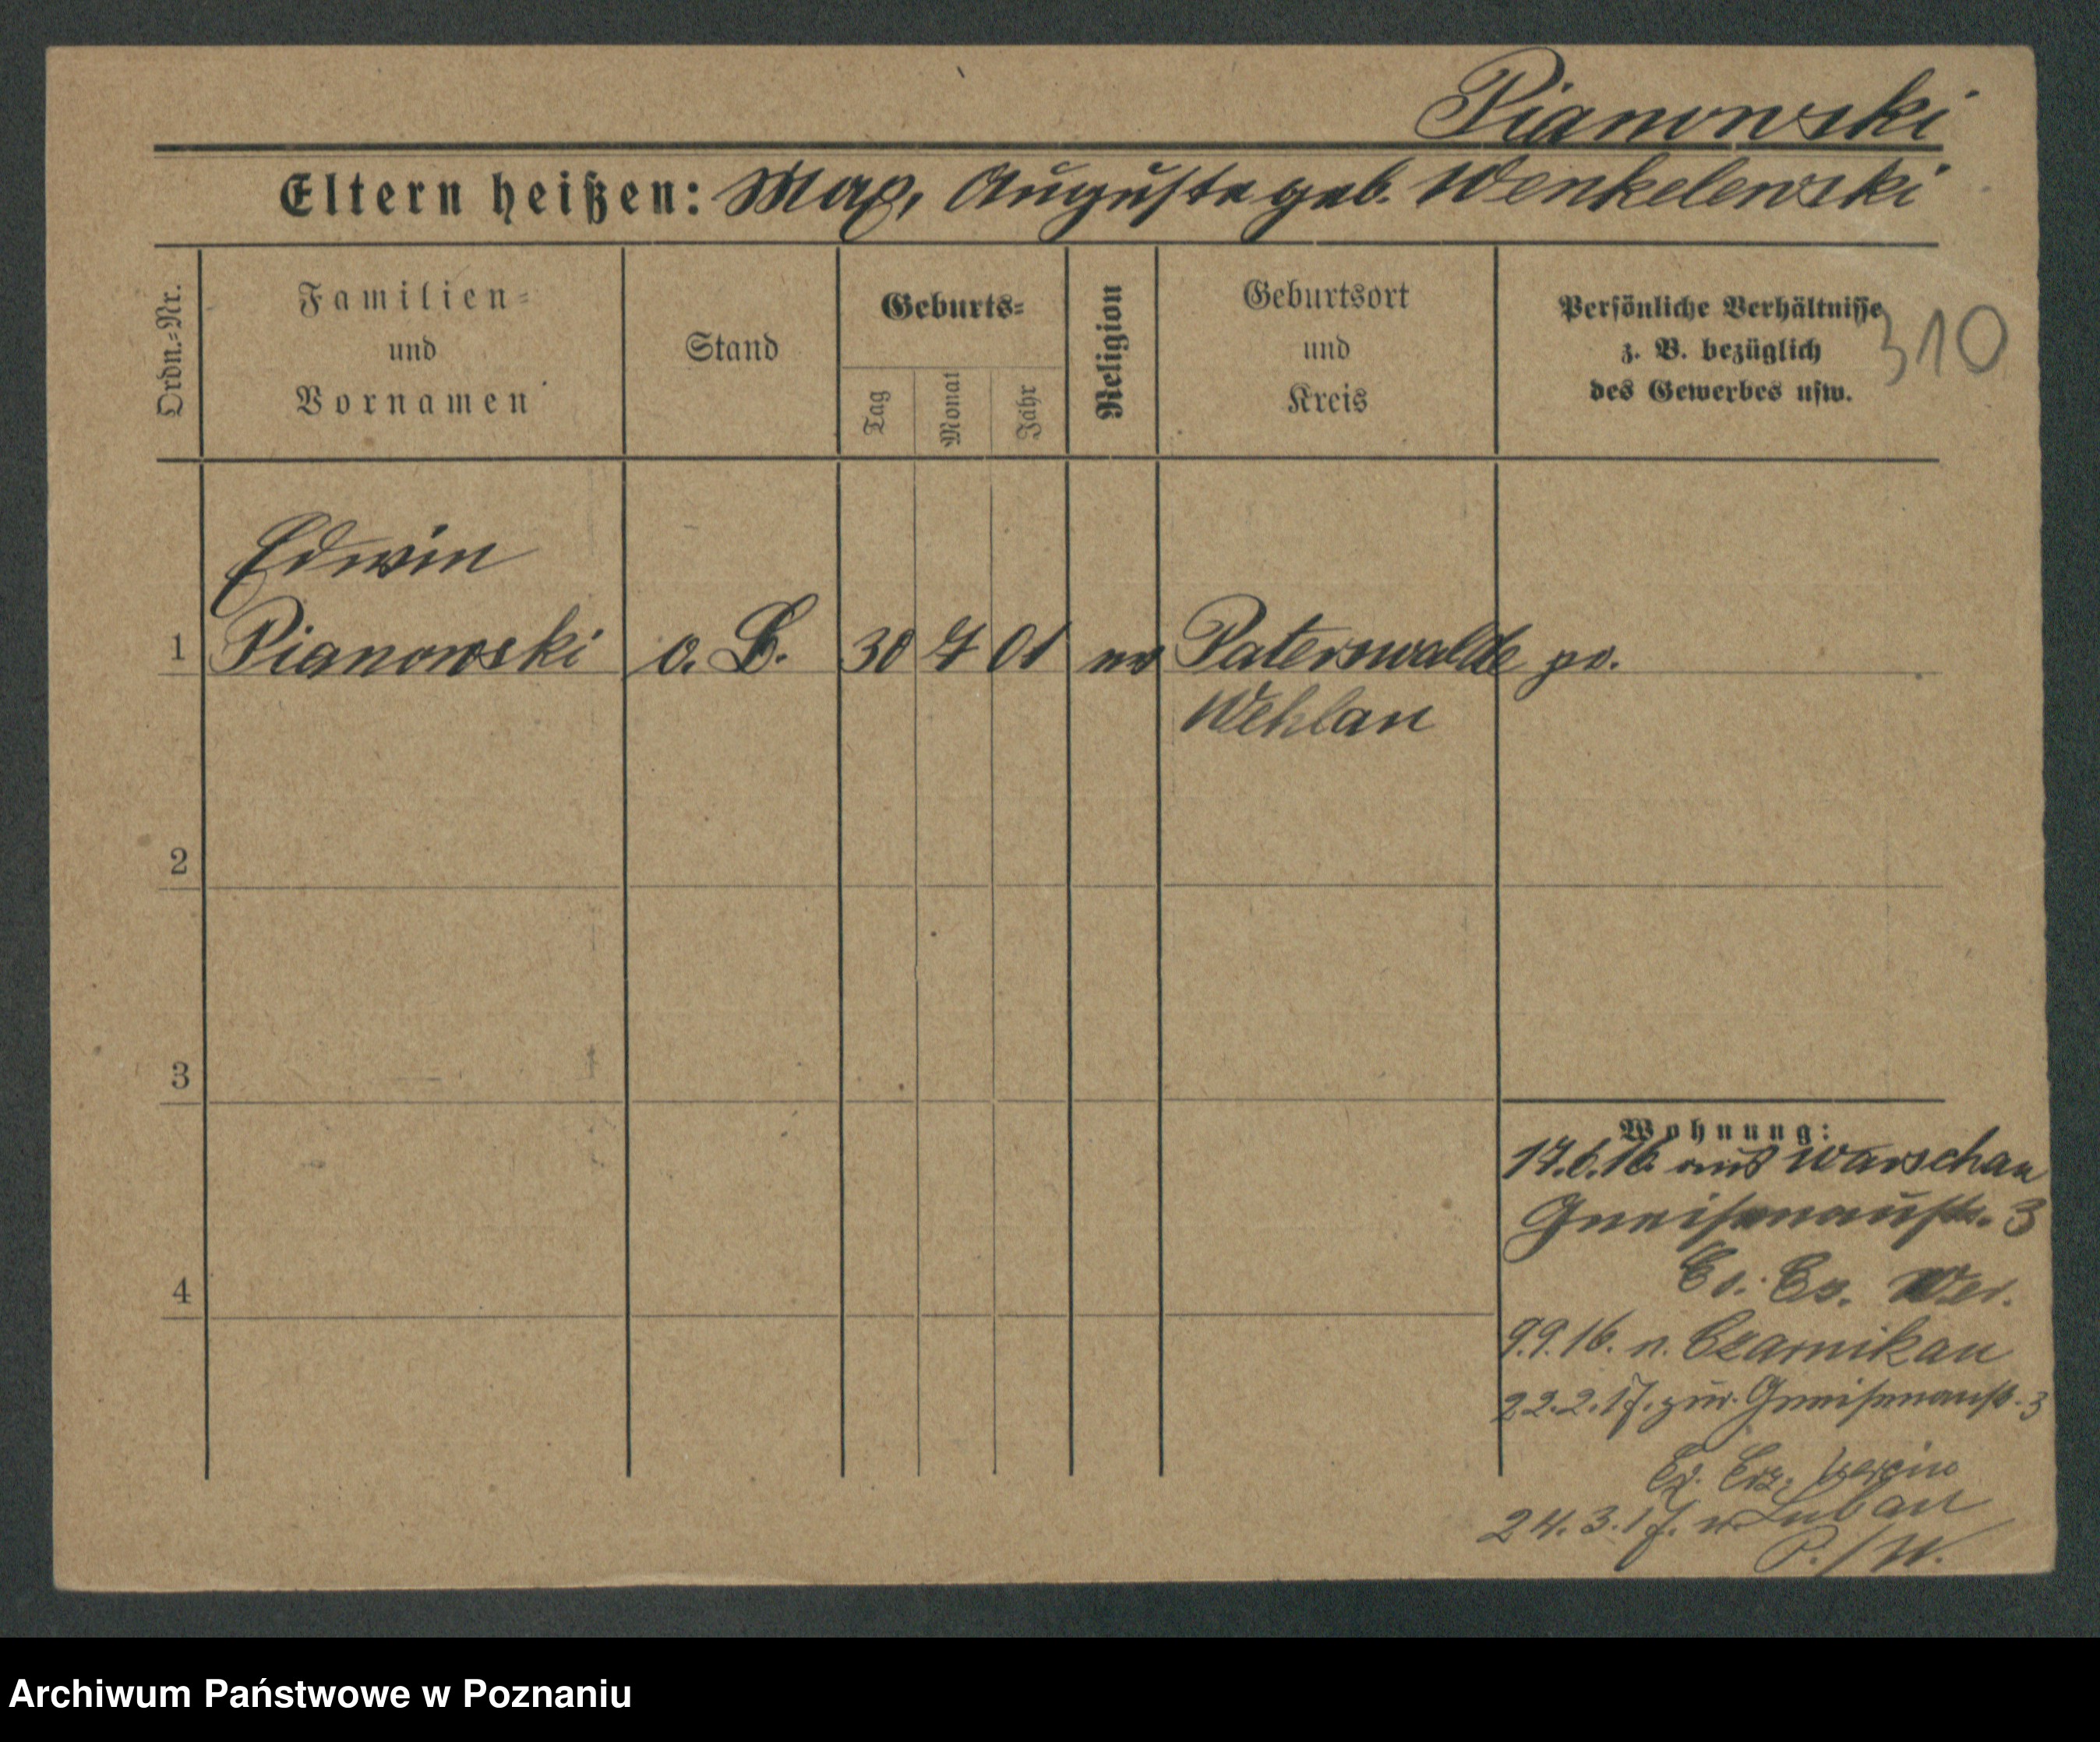 Pianowski
Eltern heißen: Max, Auguste geb. Wenkelewski
Ordn.-Nr.
Familien-
und
Vornamen
Stand
Geburts-
Tag
Monat
Jahr
Religion
Geburtsort
und
Kreis
Persönliche Verhältnisse
z. B. bezüglich
des Gewerbes usw.
310
Edwin
1 Pianowski o. B. 30 7 01 ev Paterswalde pr.
Wehlau
2
3
4
Wohnung:
17.6.16 aus Warschau
Gneisenaustr. 3
9.9.16. n. Czarnikau
22.2.17. zur. Gneisenaustr. 3
24.3.17. n. Luban
P./W.
Archiwum Państwowe w Poznaniu